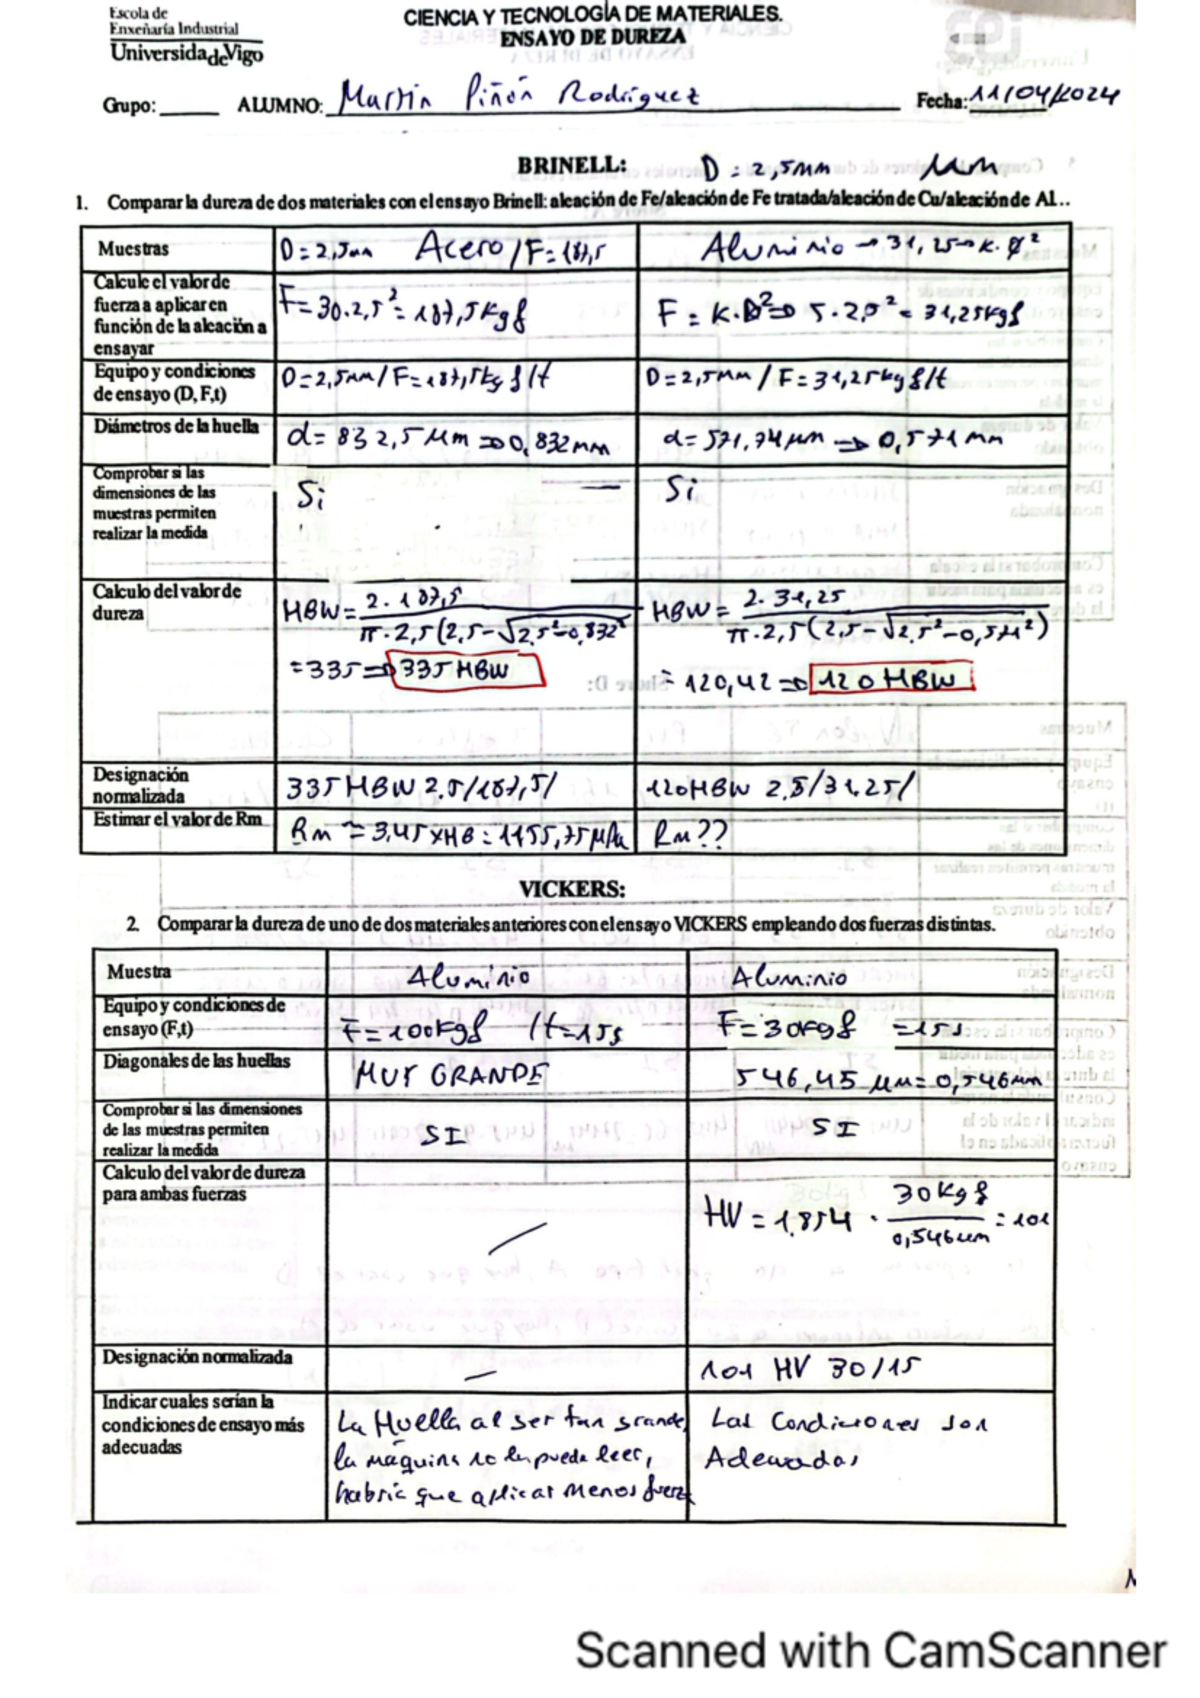 Escola de
Enxeñaría Industrial
Universidade de Vigo
CIENCIA Y TECNOLOGÍA DE MATERIALES.
ENSAYO DE DUREZA
Grupo: ______ ALUMNO: Martín Piñón Rodríguez Fecha: 11/04/2024
BRINELL: D = 2,5mm μm
1. Comparar la dureza de dos materiales con el ensayo Brinell: aleación de Fe/aleación de Fe tratada/aleación de Cu/aleación de Al..
Muestras D=2,5mm Acero / F=187,5 Aluminio → 31,25 → K·Ø²
Calcule el valor de
fuerza a aplicar en
función de la aleación a
ensayar
F=30·2,5²=187,5kgf
F = K·D² ⇒ 5·2,5² = 31,25kgf
Equipo y condiciones
de ensayo (D, F,t)
D=2,5mm / F=187,5kgf/t
D=2,5mm / F=31,25kgf/t
Diámetros de la huella
d= 832,5 μm ⇒ 0,832mm
d= 571,74μm ⇒ 0,571mm
Comprobar si las
dimensiones de las
muestras permiten
realizar la medida
Si —
Si
Calculo del valor de
dureza
HBW = 2·187,5 / π·2,5(2,5-√2,5²-0,832²
=335 ⇒ 335 HBW
HBW = 2·31,25 / π·2,5(2,5-√2,5²-0,571²)
= 120,42 ⇒ 120 HBW
Designación
normalizada
335 HBW 2.5/187,5/
120HBW 2.5/31,25/
Estimar el valor de Rm Rm ≃ 3,45×HB = 1155,75 MPa Rm??
VICKERS:
2. Comparar la dureza de uno de dos materiales anteriores con el ensayo VICKERS empleando dos fuerzas distintas.
Muestra Aluminio Aluminio
Equipo y condiciones de
ensayo (F,t)
F=100kgf /t=15s
F=30kgf =15s
Diagonales de las huellas MUY GRANDE 546,45 μm=0,546mm
Comprobar si las dimensiones
de las muestras permiten
realizar la medida
SI
SI
Calculo del valor de dureza
para ambas fuerzas
HV = 1,854 · 30kgf / 0,546mm = 101
Designación normalizada — 101 HV 30/15
Indicar cuales serían la
condiciones de ensayo más
adecuadas
La Huella al ser tan grande,
la máquina no la puede leer,
habría que aplicar menos fuerza
Las Condiciones son
Adecuadas
Scanned with CamScanner